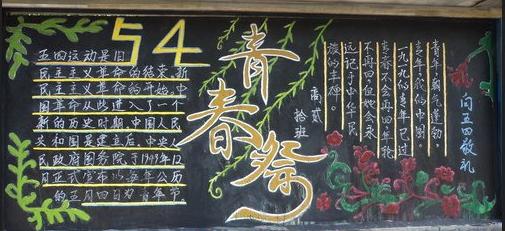 54
五四运动是旧
民主主义革命的结束,新
民主主义革命的开始,中
国革命从此进入了一个
新的历史时期.中国人民
共和国是建立后,中央人
民政府国务院于1949年12
月正式宣布以每年公历
的五月四日为青年节
青春祭
高贰
拾班
向五四敬礼
青年,朝气蓬勃,
青年,我们的中国
一九一九的青年已过
青春不会再回
不再回.但她会永
远记于中华民
族的丰碑。